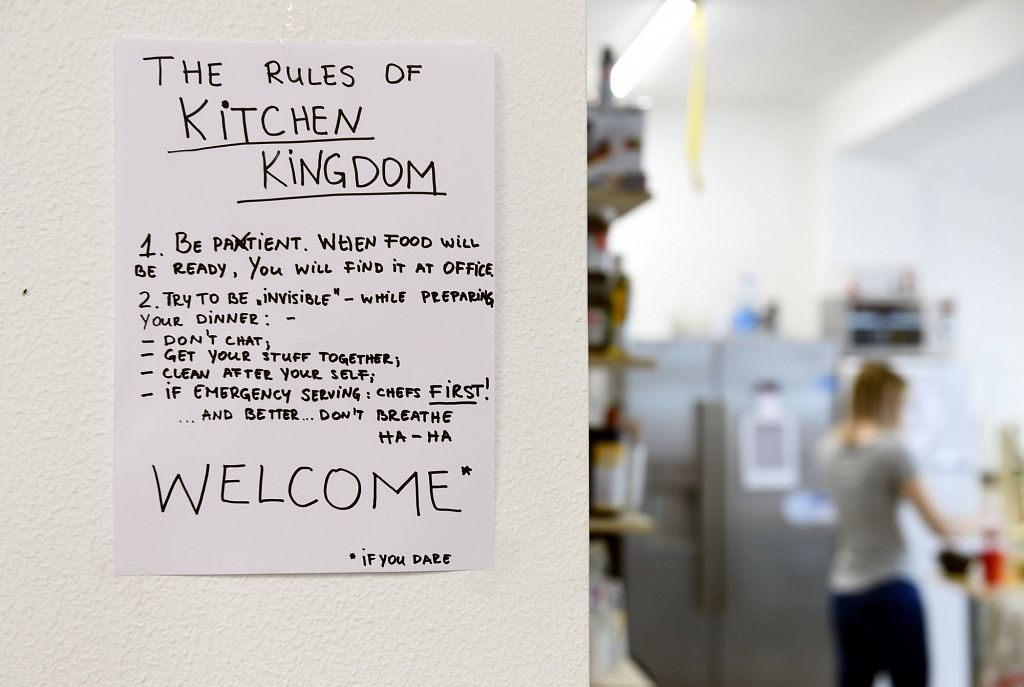 THE RULES OF
KITCHEN
KINGDOM
1. BE PATIENT. WHEN FOOD WILL
BE READY, YOU WILL FIND IT AT OFFICE.
2. TRY TO BE „INVISIBLE" - WHILE PREPARING
YOUR DINNER: -
- DON'T CHAT;
- GET YOUR STUFF TOGETHER;
- CLEAN AFTER YOUR SELF;
- IF EMERGENCY SERVING: CHEFS FIRST!
...AND BETTER... DON'T BREATHE
HA-HA
WELCOME*
* IF YOU DARE